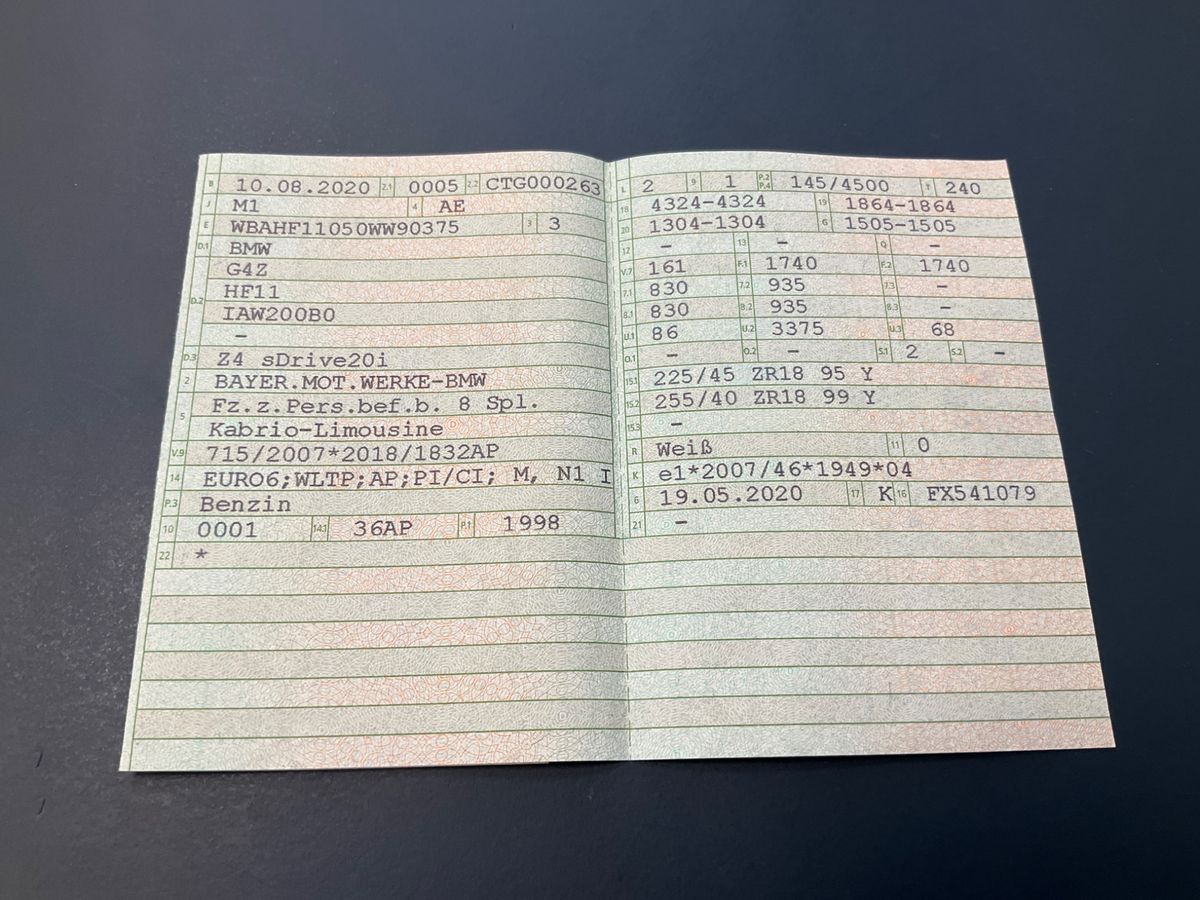 B 10.08.2020 2.1 0005 2.2 CTG000263
J M1 4 AE
E WBAHF11050WW90375 3 3
D.1 BMW
G4Z
D.2 HF11
IAW200B0
–
D.3 Z4 sDrive20i
2 BAYER.MOT.WERKE-BMW
5 Fz.z.Pers.bef.b. 8 Spl.
Kabrio-Limousine
V.9 715/2007*2018/1832AP
14 EURO6;WLTP;AP;PI/CI; M, N1 I
P.3 Benzin
10 0001 14.1 36AP P.1 1998
22 *
L 2 9 1 P.2 P.4 145/4500 T 240
18 4324-4324 19 1864-1864
20 1304-1304 G 1505-1505
12 – 13 – Q –
V.7 161 F.1 1740 F.2 1740
7.1 830 7.2 935 7.3 –
8.1 830 8.2 935 8.3 –
U.1 86 U.2 3375 U.3 68
O.1 – O.2 – S.1 2 S.2 –
15.1 225/45 ZR18 95 Y
15.2 255/40 ZR18 99 Y
15.3 –
R Weiß 11 0
K e1*2007/46*1949*04
6 19.05.2020 17 K 16 FX541079
21 –